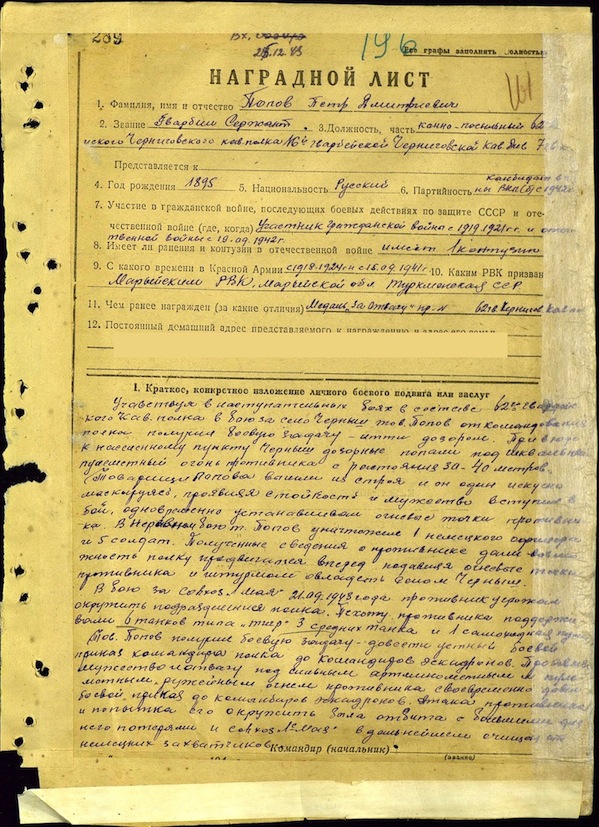 289
Вх.
25.12.43
196
Все графы заполнять полностью
НАГРАДНОЙ ЛИСТ
1. Фамилия, имя и отчество Попов Петр Дмитриевич
2. Звание Гвардии Сержант. 3. Должность, часть конно-посыльный 62
Черниговского кав. полка 16й гвардейской Черниговской Кав. див. 7
Представляется к
4. Год рождения 1895 5. Национальность Русский 6. Партийность кандидат в
ВКП(б) с 1942
7. Участие в гражданской войне, последующих боевых действиях по защите СССР и оте-
чественной войне (где, когда) Участник гражданской войны с 1919-1921 гг. и отече
твенной войны с 19.09.1942 г.
8. Имеет ли ранения и контузии в отечественной войне имеет 1 контузию
9. С какого времени в Красной Армии с 1918-1924 10. Каким РВК призван
Марыйским РВК, Марыйской обл Туркменская ССР.
11. Чем ранее награжден (за какие отличия) Медаль „За Отвагу" пр. N 62 гв. Черниг.
12. Постоянный домашний адрес представляемого к награждению и адрес его семьи
I. Краткое, конкретное изложение личного боевого подвига или заслуг
Участвуя в наступательных боях в составе 62 гвардейс
кого Кав. полка в бою за село Черныш тов. Попов от командования
полка получил боевую задачу - итти дозором. При
к населенному пункту Черныш дозорные попали под
пулеметный огонь противника с расстояния 30-40 метров.
Товарищи Попова вышли из строя и он один искусно
маскируясь, проявляя стойкость и мужество вступил в
бой, одновременно устанавливая огневые точки противни
ка. В неравном бою т. Попов уничтожил 1 немецкого офицера
и 5 солдат. Полученные сведения о противнике дали
жность полку продвигаться вперед подавляя огневые точки
противника и штурмом овладеть Черныш.
В бою за Совхоз „1 Мая" 21.09.1943 года противник угрожал
окружить подразделения полка. Пехоту противника поддержи
вали 6 танков типа „тигр" 3 средних танка и 1 самоходная пушка
Тов. Попов получил боевую задачу - довести устный боевой
приказ командира полка до командиров эскадронов. Проявляя
мужество и отвагу под сильным артминометным и пуле
метным, ружейным огнем противника своевременно довел
боевой приказ до командиров эскадронов. Атака противника
и попытка его окружить была отбита с большими для
него потерями и совхоз „1е Мая" в дальнейшем очищен от
немецких захватчиков.
Командир (начальник)
(звание)